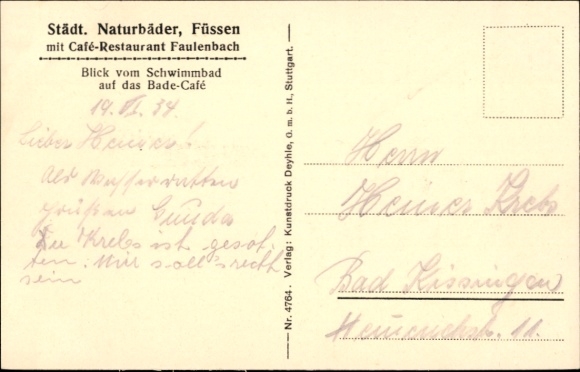 Städt. Naturbäder, Füssen
mit Café-Restaurant Faulenbach
Blick vom Schwimmbad
auf das Bade-Café
19. VI. 34
Lieber Heiner!
Als Wasserratten
grüßen Gunda
Der Krebs ist gesot-
ten. Mir soll's recht
sein
Nr. 4764. Verlag: Kunstdruck Deyhle, G. m. b. H., Stuttgart.
Herrn
Heiner Krebs
Bad Kissingen
11.